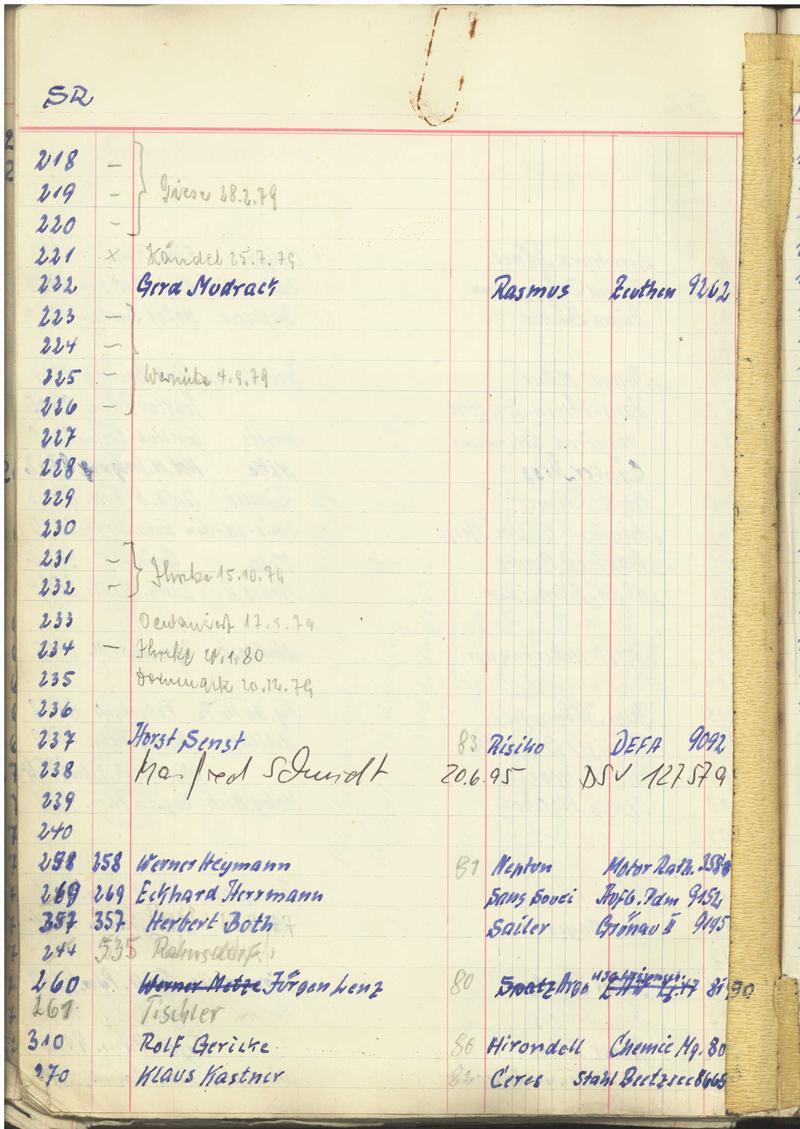 SR
218 –
219 – Giese 28.2.79
220 –
221 × Händel 25.7.79
222 Gerd Mudrack Rasmus Zeuthen 9262
223 –
224 –
225 – Wernicke 4.9.79
226 –
227
228
229
230
231 –
232 – Ihrke 15.10.79
233 17.9.79
234 – Ihrke 21.1.80
235 Dommack 20.12.79
236
237 Horst Senst 83 Risiko DEFA 9092
238 Manfred Schmidt 20.6.95 DSV 127579
239
240
258 258 Werner Heymann 81 Neptun Motor Rath.
269 269 Eckhard Herrmann Sans Souci Aufb. Pdm 9152
357 357 Herbert Both Sailer Grünau II 9195
244 535 Rahnsdorf
260 Werner Metze Jürgen Lenz 80 Spatz Argo
261 Tischler
310 Rolf Gericke 80 Hirondell Chemie Mg. 80
270 Klaus Kastner 82 Ceres Stahl Beetzsee 8665